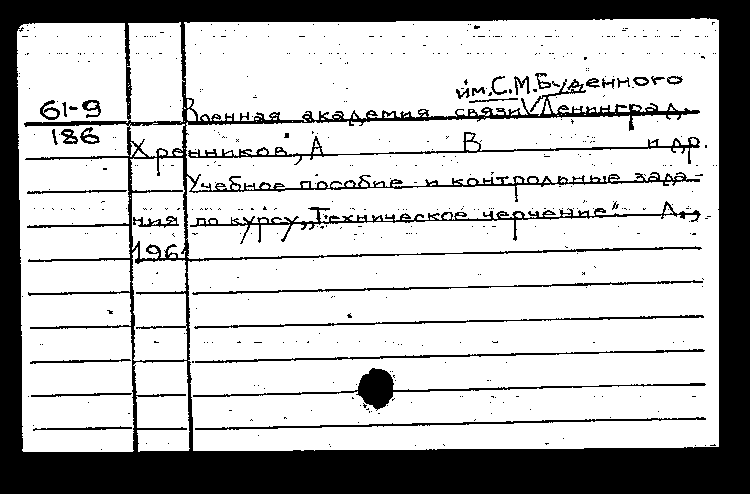 им. С.М. Буденного
61-9 Военная академия связи V Ленинград.
186
Хренников, А В и др.
Учебное пособие и контрольные зада-
ния по курсу „Техническое черчение“. Л.,
1961